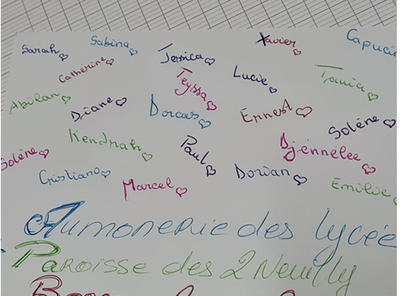 Sarah Sabina Jessica Xavier Capucin
Catherine Teyssa Lucie Tania
Abilan Diane Dorcas Ernest Solène
Solène Kendrah Paul Djénnélee
Cristiano Marcel Dorian Emilie
Aumonerie des lycée
Paroisse des 2 Neuilly